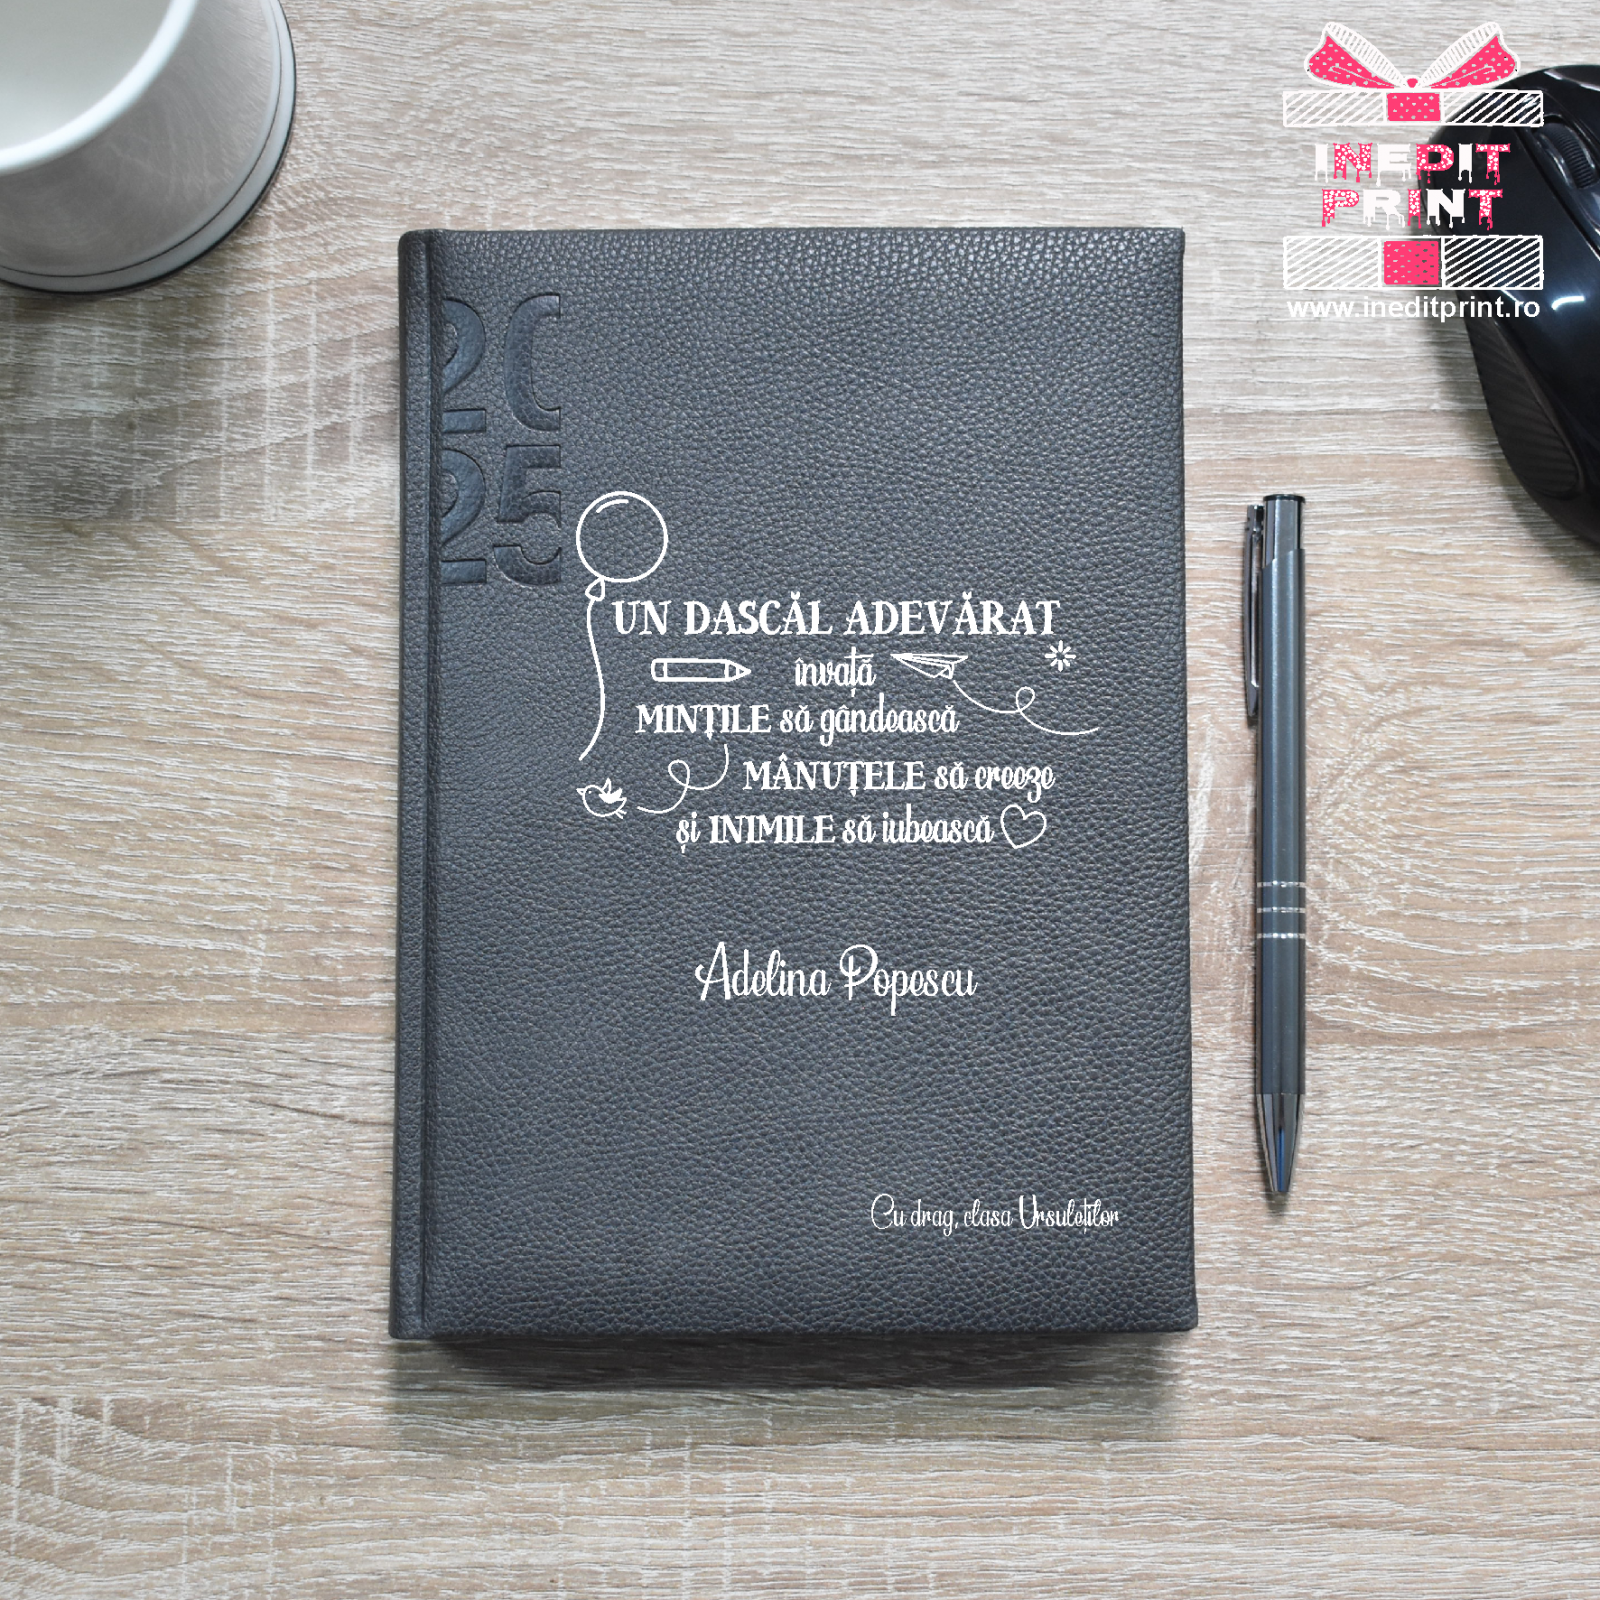 INEDIT
PRINT
www.ineditprint.ro
20
25
UN DASCĂL ADEVĂRAT
învață
MINȚILE să gândească
MÂNUȚELE să creeze
și INIMILE să iubească
Adelina Popescu
Cu drag, clasa Ursuleților